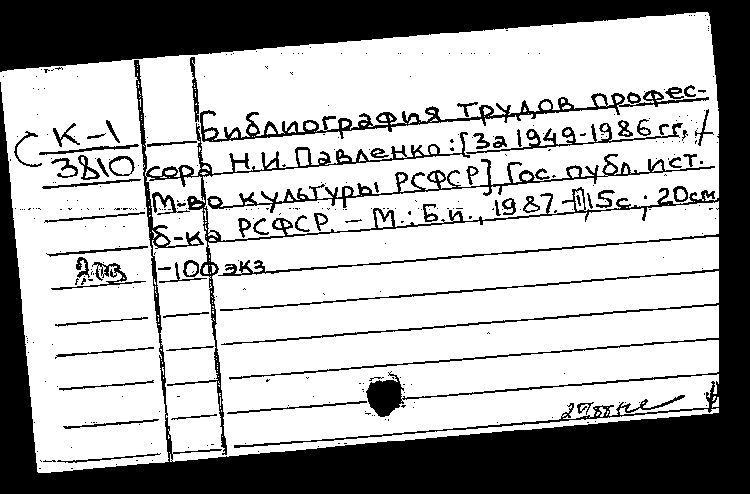 К-1
3810
Библиография трудов профес-
сора Н.И. Павленко: [За 1949-1986 гг. /
М-во культуры РСФСР], Гос. публ. ист.
б-ка РСФСР. – М.: Б.и., 1987. – 15 с.; 20 см
-100 экз